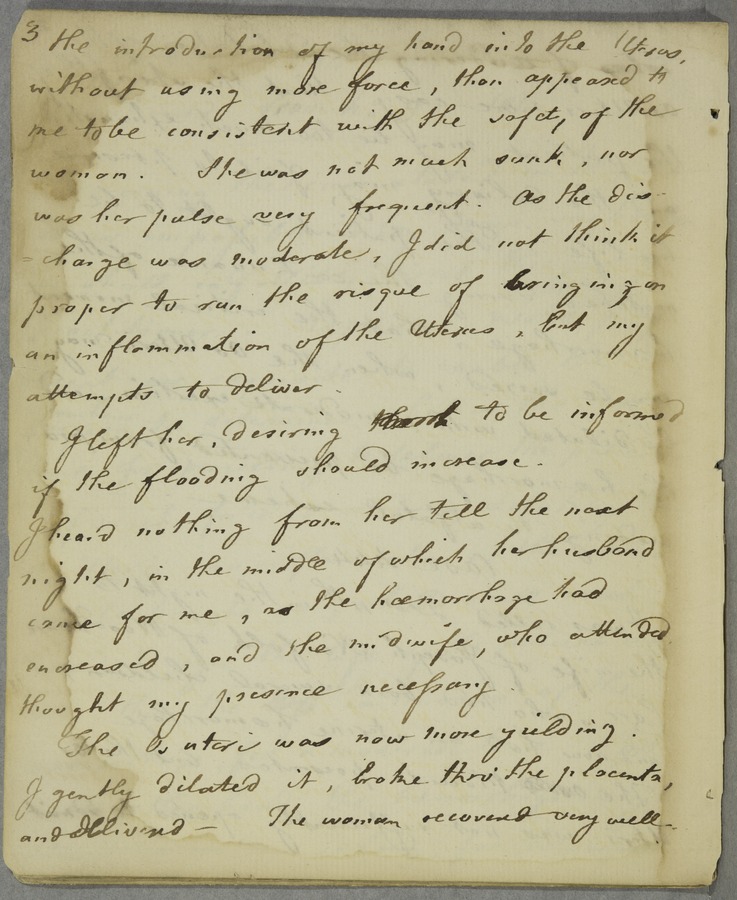 3 the introduction of my hand into the Uterus,
without using more force, than appeared to
me to be consistent with the safety of the
woman. She was not much sunk, nor
was her pulse very frequent. As the dis-
=charge was moderate, I did not think it
proper to run the risque of bringing on
an inflammation of the Uterus, but my
attempts to deliver.
I left her, desiring to be informed
if the flooding should increase.
I heard nothing from her till the next
night, in the middle of which her husband
came for me, as the hæmorrhage had
encreased, and the midwife, who attended
thought my presence necessary.
The Os uteri was now more yielding.
I gently dilated it, broke thro' the placenta,
and delivered — The woman recovered very well.